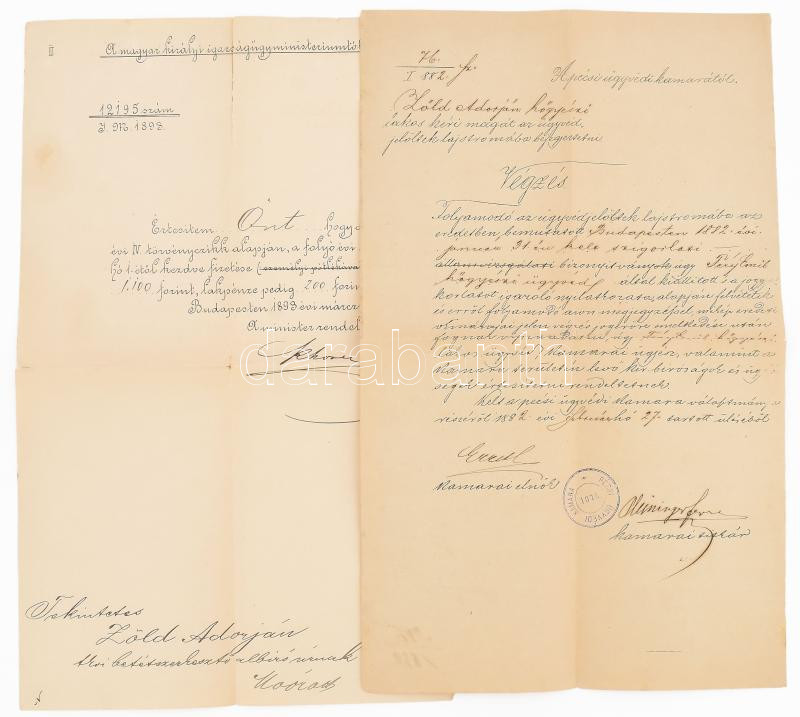 II
A magyar királyi igazságügyministeriumtól
12195 szám
I. M. 1893.
Értesitem Önt, hogy a
évi IV. törvényczikk alapján, a folyó évi
hó 1-étől kezdve fizetése (személyi pótlékával
1.100 forint, lakpénze pedig 200 forin
Budapesten 1893 évi márcz
A minister rendel
Tekintetes
Zöld Adorján
tkvi betétszerkesztő albiró úrnak
76
I 882. sz.
A pécsi ügyvédi kamarától.
Zöld Adorján högyészi
lakos kéri magát az ügyvéd
jelöltek lajstromába bejegyeztetni
Végzés
Folyamodó az ügyvédjelöltek lajstromába az
eredetben bemutatott Budapesten 1882 évi
január 31 én kelt szigorlati
államvizsgálati bizonyitványok
högyészi ügyvéd által kiállitott s a jog
korlatot igazoló nyilatkozata, alapján felvétetik
s erről folyamodó azon megjegyzéssel, mikép eredeti
okmányai jelen végzés jogerőre emelkedési után
fognak
ügyvéd kamarai ügyész, valamint a
kamara területén levő kir. biróságok és üg
ségek értesittetni rendeltetnek.
Kelt a pécsi ügyvédi kamara választmány
részéről 1882 évi február hó 27. tartott üléséből
kamarai elnök
PÉCSI ÜGYVÉDI KAMARA
kamarai titkár
darabanth